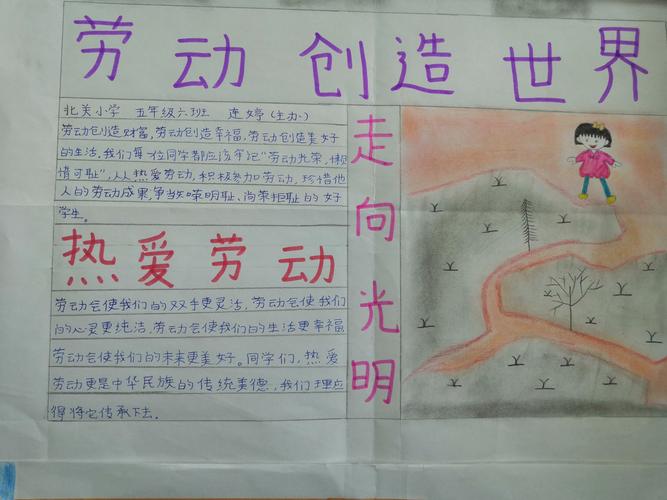 劳动创造世界
北关小学 五年级六班 连婷(主办)
劳动创造财富,劳动创造幸福,劳动创造美好
的生活,我们每一位同学都应该牢记“劳动光荣,懒
惰可耻”,人人热爱劳动,积极参加劳动,珍惜他
人的劳动成果,争当知荣明耻、尚荣拒耻的好
学生。
热爱劳动
劳动会使我们的双手更灵活,劳动会使我们
的心灵更纯洁,劳动会使我们的生活更幸福
劳动会使我们的未来更美好。同学们,热爱
劳动更是中华民族的传统美德,我们理应
得将它传承下去。
走向光明